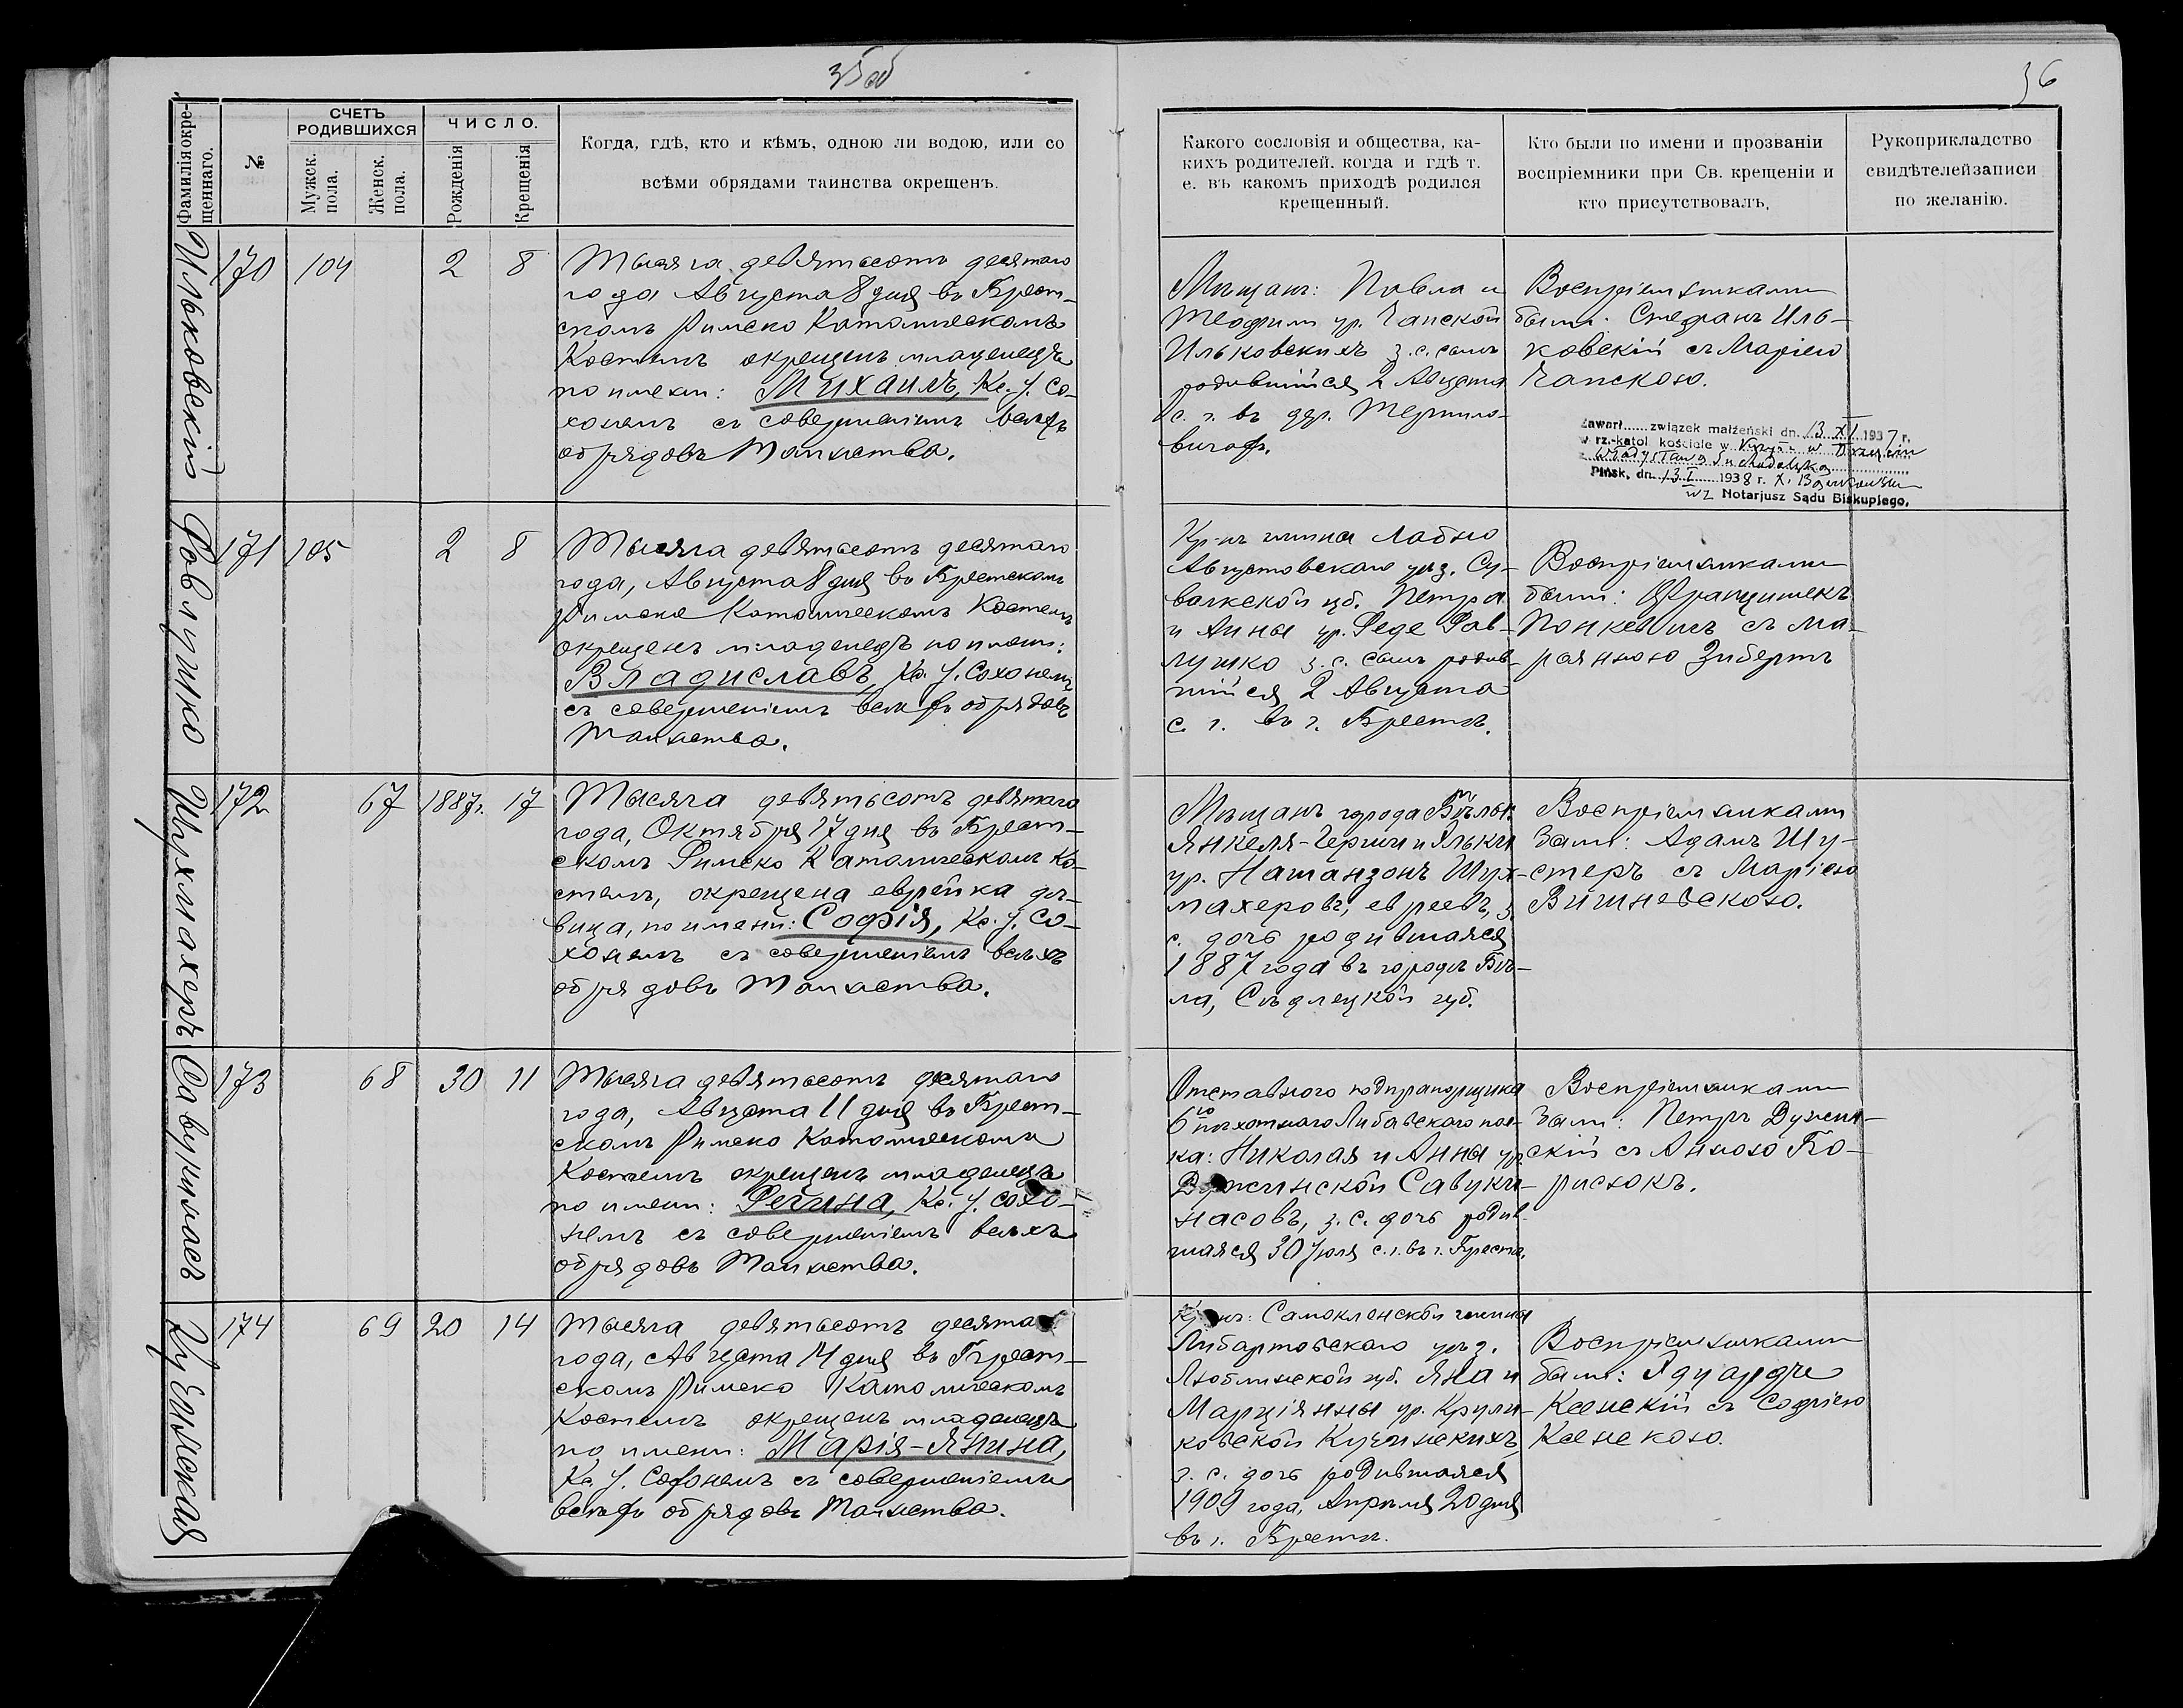 35об
36
Фамилія окре-
щеннаго.
№
СЧЕТЪ
РОДИВШИХСЯ
Мужск.
пола.
Женск.
пола.
ЧИСЛО.
Рожденія
Крещенія
Когда, гдѣ, кто и кѣмъ, одною ли водою, или со
всѣми обрядами таинства окрещенъ.
Какого сословія и общества, ка-
кихъ родителей. когда и гдѣ т.
е. въ какомъ приходѣ родился
крещенный.
Кто были по имени и прозваніи
воспріемники при Св. крещеніи и
кто присутствовалъ,
Рукоприкладство
свидѣтелей записи
по желанію.
Ильковскій
170 104 2 8
Тысяча девятьсотъ десятаго
года Августа 8 дня въ Брест-
скомъ Римско Католическомъ
Костелѣ окрещенъ младенецъ
по имени: Михаилъ, Кс. І. Со-
хонемъ съ совершеніемъ всѣхъ
обрядовъ Таинства.
Мѣщанъ: Павла и
Теофили ур. Чапской
Ильковскихъ з. с. сынъ
родившійся 2 Августа
с. г. въ дер. Терпило-
вичахъ.
Воспріемниками
были: Стефанъ Иль-
ковскій съ Маріею
Чапскою.
Zawarł...... związek małżeński dn. 13 XI 1937 r.
w rz.-katol kościele w
Pińsk, dn. 13 I 1938 r.
wz Notarjusz Sądu Biskupiego.
Ровлушко
171 105 2 8
Тысяча девятьсотъ десятаго
года, Августа 8 дня въ Брестскомъ
Римско Католическомъ Костелѣ
окрещенъ младенецъ по имени:
Владиславъ, Кс. І. Сохонемъ
съ совершеніемъ всѣхъ обрядовъ
Таинства.
Кр-нъ гмины Лабно
Августовскаго уѣз. Су-
валкской губ. Петра
и Анны ур. Реде Рав-
лушко з. с. сынъ родив-
шійся 2 Августа
с. г. въ г. Брестѣ.
Воспріемниками
были: Францишекъ
Понкевичъ съ Ма-
ріянною Зиберть
Шухмахеръ
172 67 1887г. 17
Тысяча девятьсотъ девятаго
года, Октября 17 дня въ Брест-
скомъ Римско Католическомъ Ко-
стелѣ, окрещена еврейка дѣ-
вица, по имени: Софія, Кс. І. Со-
хонемъ съ совершеніемъ всѣхъ
обрядовъ Таинства.
Мѣщанъ города Бѣлы:
Янкеля-Герши и Яльки
ур. Натанзонъ Шух-
махеровъ, евреевъ, з.
с. дочь родившаяся
1887 года въ городѣ Бѣ-
ла, Сѣдлецкой губ.
Воспріемниками
были: Адамъ Шу-
стеръ съ Маріею
Вишневскою.
Савукинасъ
173 68 30 11
Тысяча девятьсотъ десятаго
года, Августа 11 дня въ Брест-
скомъ Римско Католическомъ
Костелѣ окрещенъ младенецъ
по имени: Регина, Кс. І. Сохо-
немъ съ совершеніемъ всѣхъ
обрядовъ Таинства.
Отставного подпрапорщика
6го пѣхотнаго Либавскаго пол-
ка: Николая и Анны ур.
Дужинской Савуки-
насовъ, з. с. дочь родив-
шаяся 30 Іюля с. г. въ г. Бреста.
Воспріемниками
были: Петръ Дужин-
скій съ Анною Бо-
рисюкъ.
Кучинская
174 69 20 14
Тысяча девятьсотъ десята
года, Августа 14 дня въ Брест-
скомъ Римско Католическомъ
Костелѣ окрещенъ младенецъ
по имени: Марія-Янина,
Кс. І. Сохонемъ съ совершеніемъ
всѣхъ обрядовъ Таинства.
Кр-нъ: Самокленской гмины
Любартовскаго уѣз.
Люблинской губ. Яна и
Марціянны ур. Крули-
ковской Кучинскихъ,
з. с. дочь родившаяся
1909 года, Апрѣля 20 дня
въ г. Брестѣ.
Воспріемниками
были: Эдуардъ
Ксенскій съ Софіею
Ксенскою.